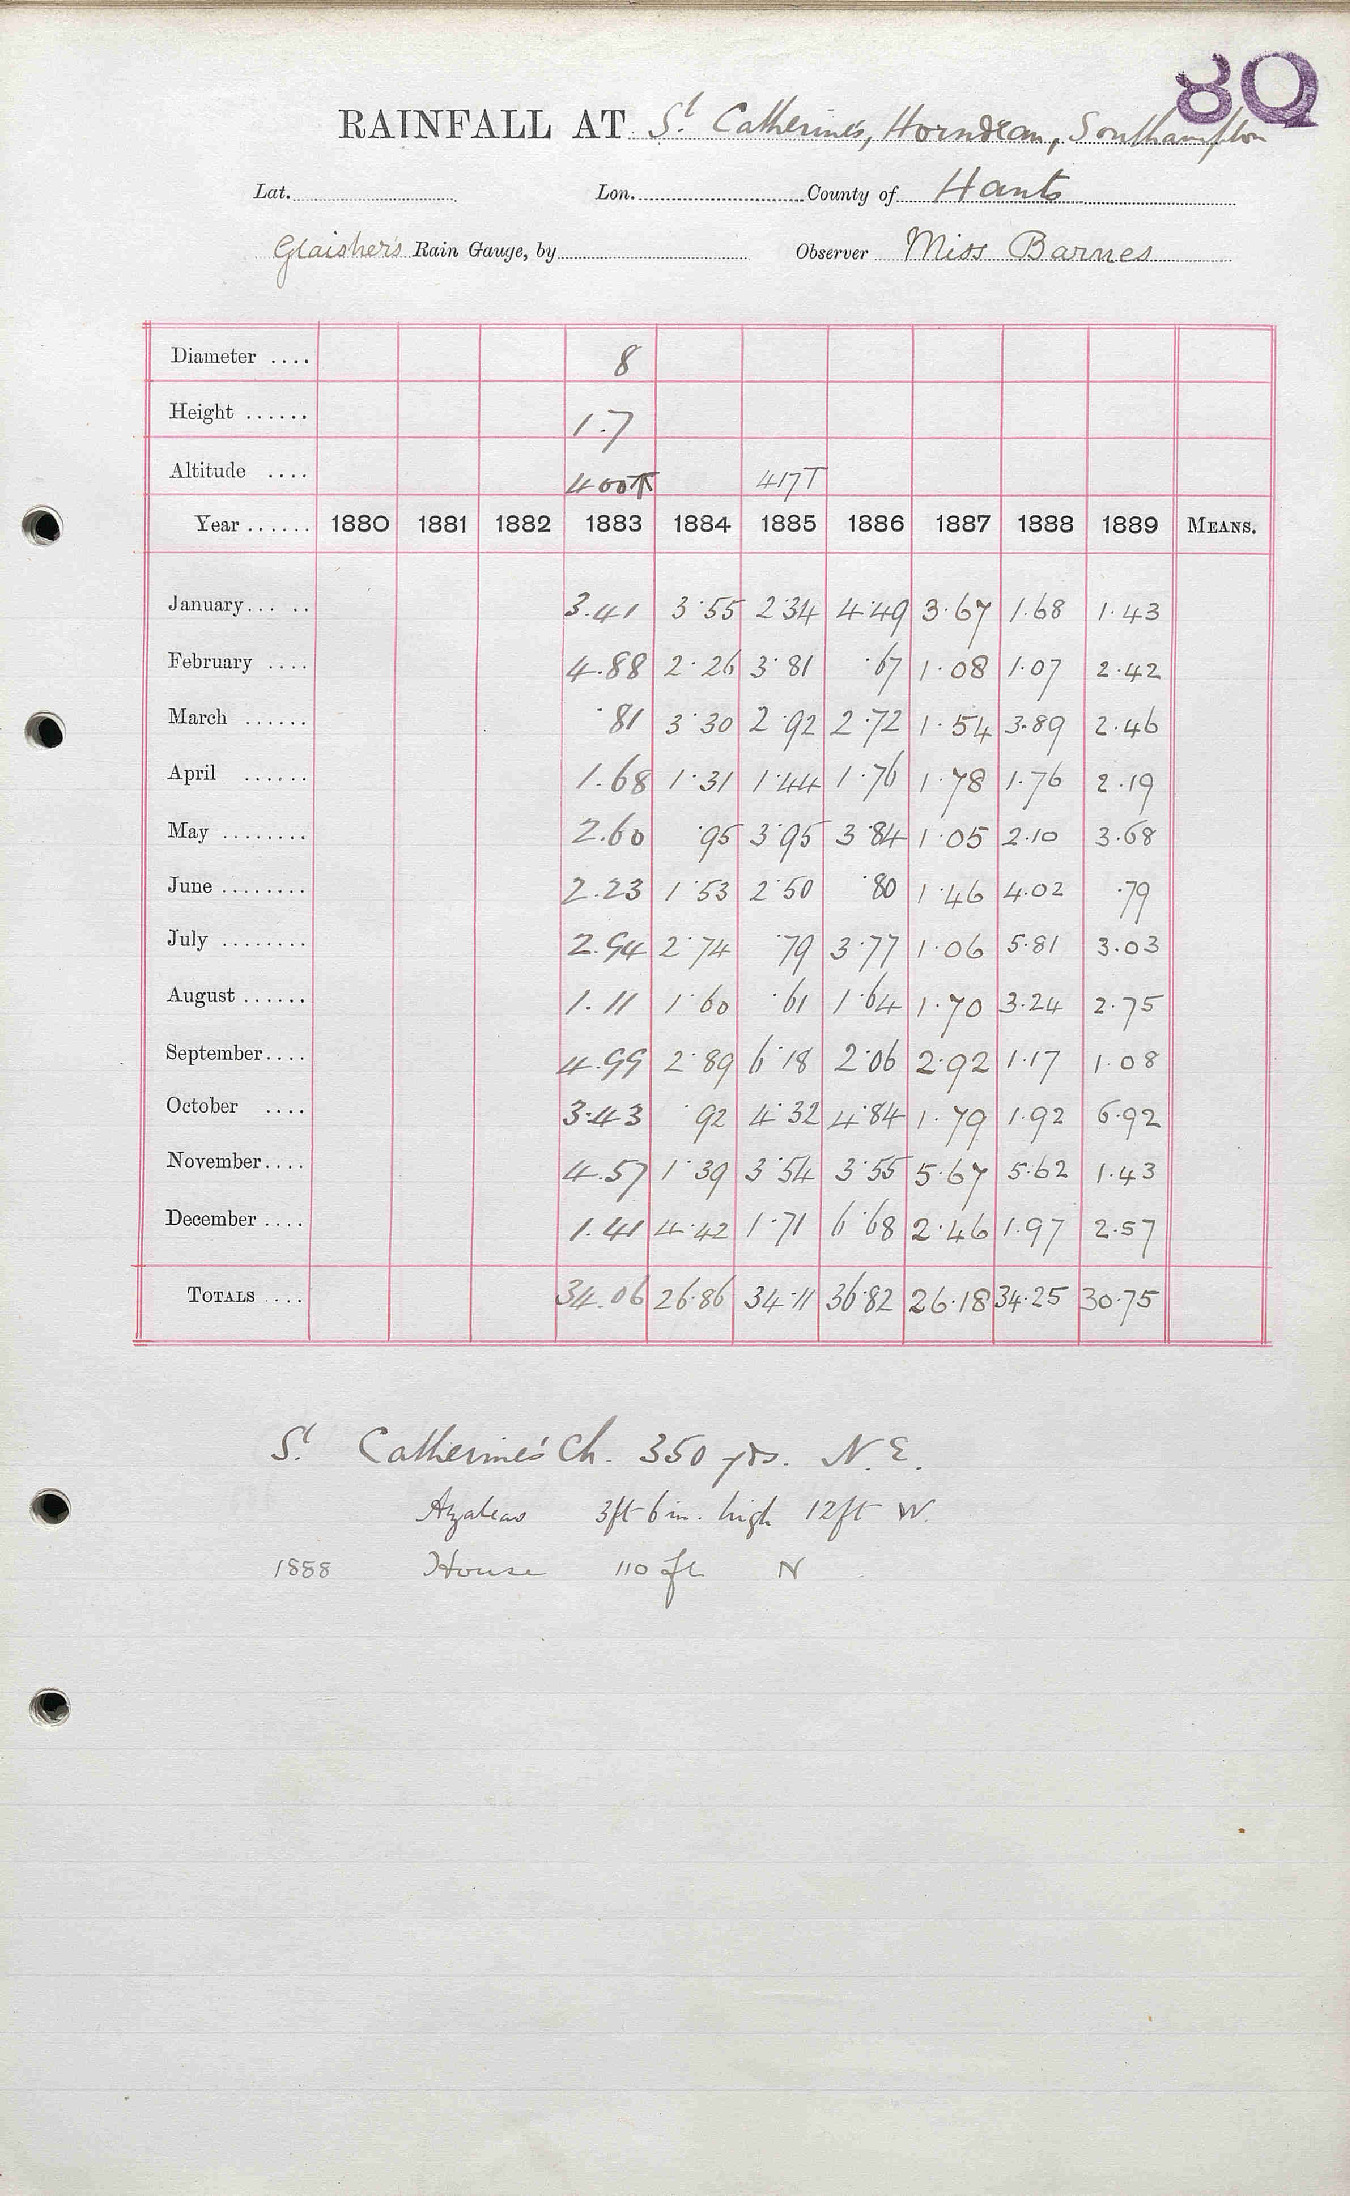 80
RAINFALL AT St Catherine's, Horndean, Southampton
Lat. Lon. County of Hants
Glaisher's Rain Gauge, by Observer Miss Barnes
Diameter .... 8
Height ...... 1.7
Altitude .... 400T 417T
Year ...... 1880 1881 1882 1883 1884 1885 1886 1887 1888 1889 MEANS.
January... .. 3.41 3.55 2.34 4.49 3.67 1.68 1.43
February .... 4.88 2.26 3.81 .67 1.08 1.07 2.42
March ...... .81 3.30 2.92 2.72 1.54 3.89 2.46
April ...... 1.68 1.31 1.44 1.76 1.78 1.76 2.19
May ........ 2.60 .95 3.95 3.84 1.05 2.10 3.68
June ........ 2.23 1.53 2.50 .80 1.46 4.02 .79
July ........ 2.94 2.74 .79 3.77 1.06 5.81 3.03
August ...... 1.11 1.60 .61 1.64 1.70 3.24 2.75
September.... 4.99 2.89 6.18 2.06 2.92 1.17 1.08
October .... 3.43 .92 4.32 4.84 1.79 1.92 6.92
November.... 4.57 1.39 3.54 3.55 5.67 5.62 1.43
December .... 1.41 4.42 1.71 6.68 2.46 1.97 2.57
TOTALS .... 34.06 26.86 34.11 36.82 26.18 34.25 30.75
St Catherine's Ch. 350 yds. N.E.
Azaleas 3ft 6in. high 12ft W.
1888 House 110 ft N